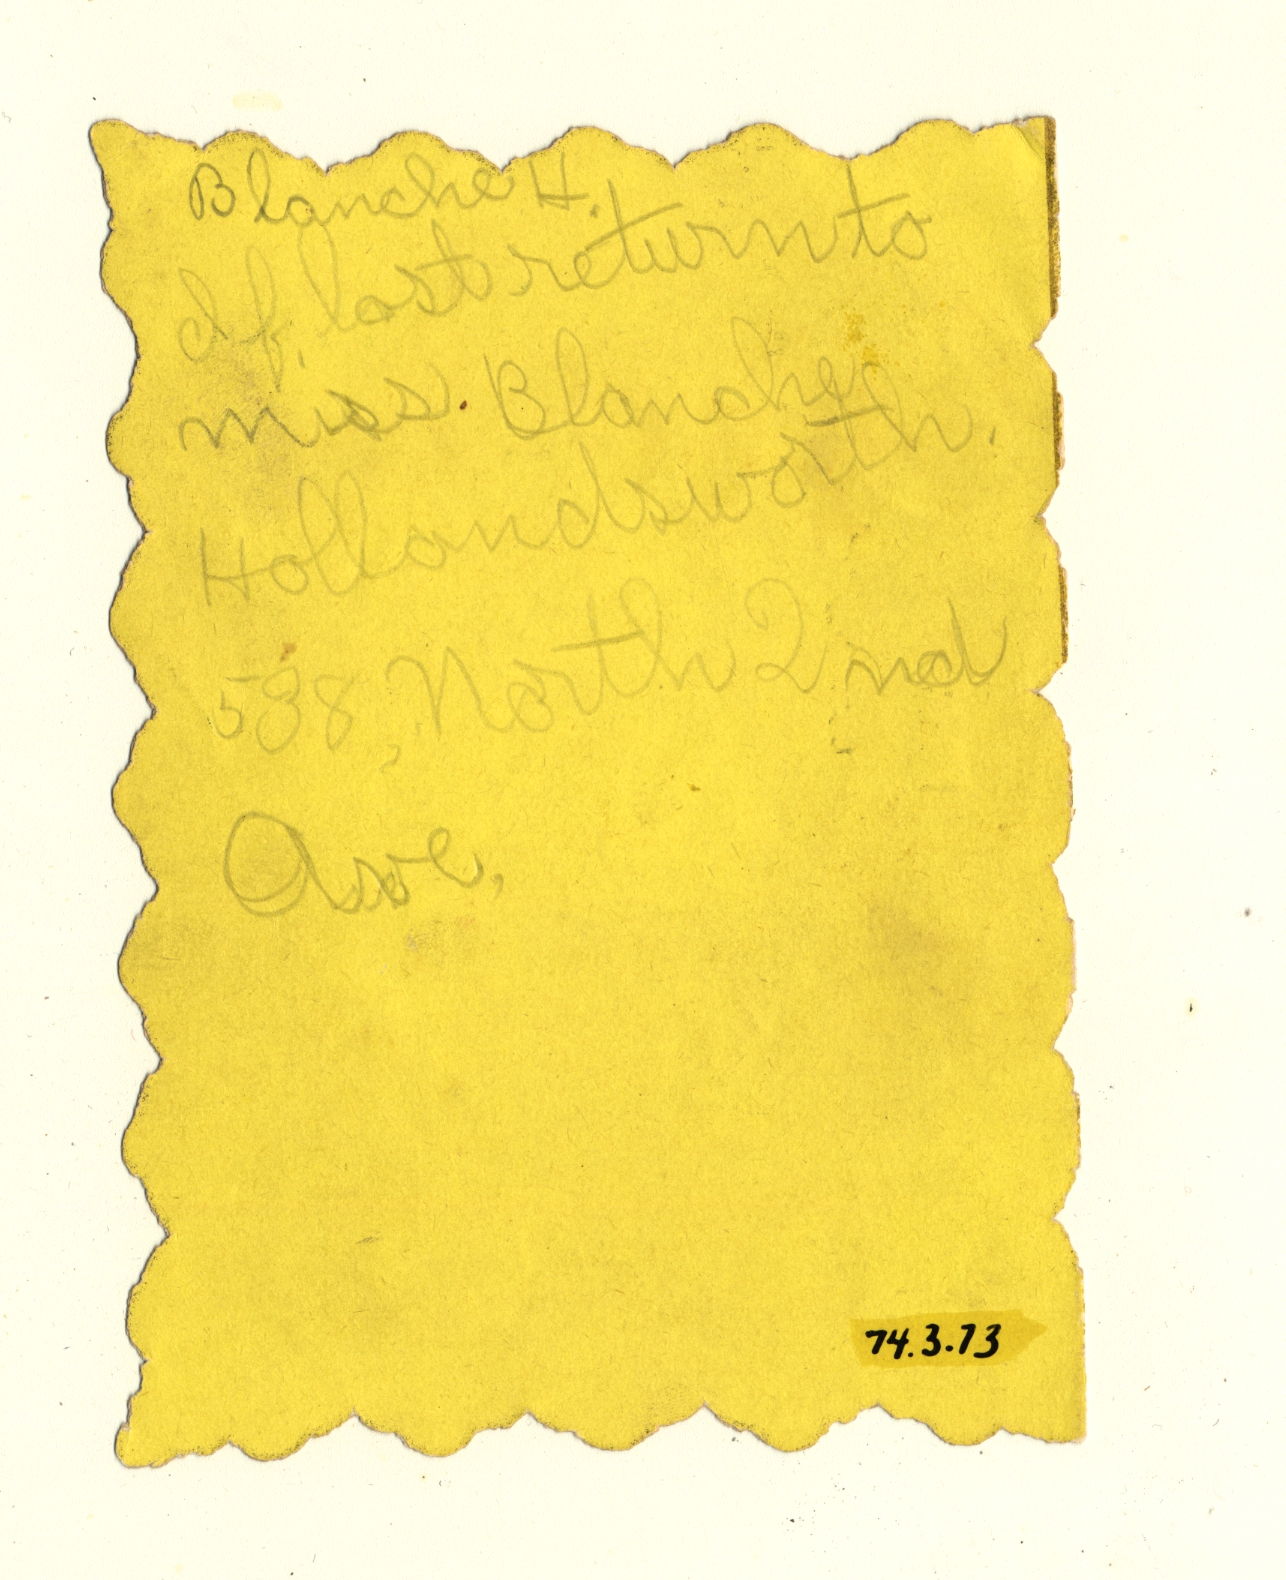 Blanche H.
If lost return to
miss. Blanche
Hollandsworth.
588, North 2nd
Ave,
74.3.73